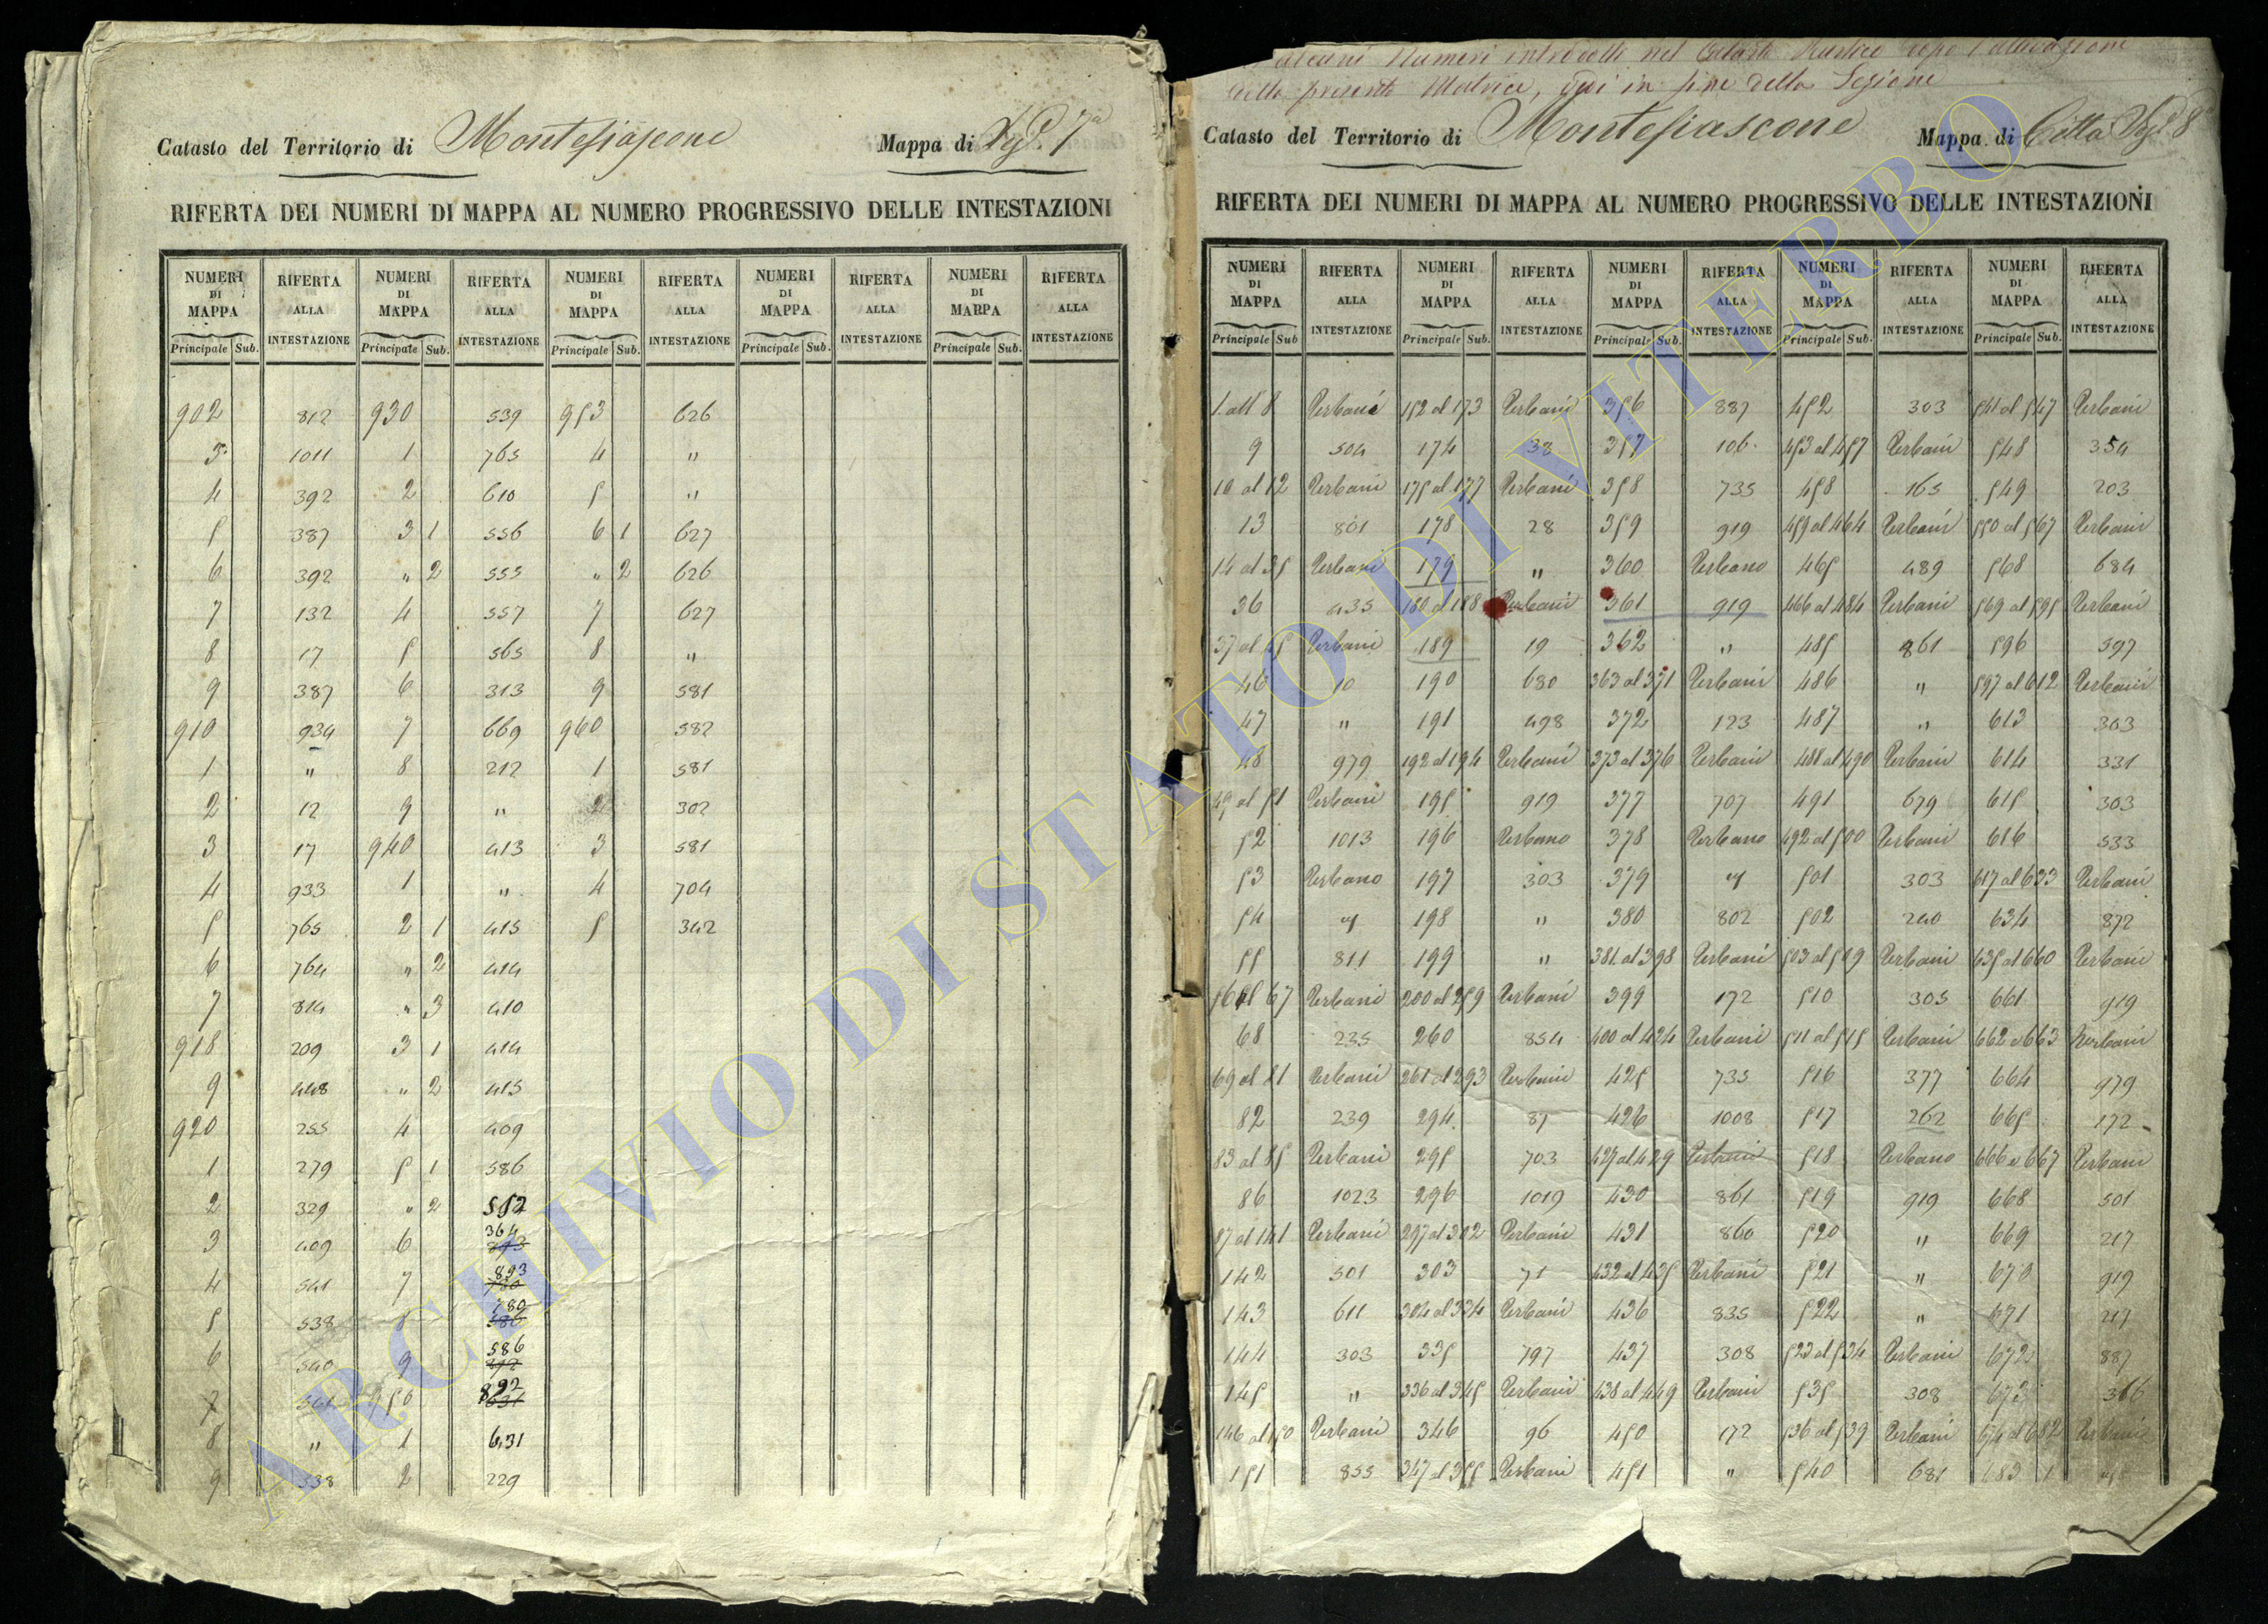 Catasto del Territorio di Montefiascone Mappa di Sez. 7a
RIFERTA DEI NUMERI DI MAPPA AL NUMERO PROGRESSIVO DELLE INTESTAZIONI
NUMERI DI MAPPA RIFERTA ALLA INTESTAZIONE NUMERI DI MAPPA RIFERTA ALLA INTESTAZIONE NUMERI DI MAPPA RIFERTA ALLA INTESTAZIONE NUMERI DI MAPPA RIFERTA ALLA INTESTAZIONE NUMERI DI MAPPA RIFERTA ALLA INTESTAZIONE
Principale Sub. Principale Sub. Principale Sub. Principale Sub. Principale Sub.
902 812 930 539 953 626
3 1011 1 765 4 "
4 392 2 610 5 "
5 387 3 1 556 6 1 627
6 392 " 2 555 " 2 626
7 132 4 557 7 627
8 17 5 565 8 "
9 387 6 313 9 581
910 934 7 669 960 582
1 " 8 212 1 581
2 12 9 " 2 302
3 17 940 413 3 581
4 933 1 " 4 704
5 765 2 1 415 5 342
6 764 " 2 414
7 814 " 3 410
918 209 3 1 414
9 448 " 2 415
920 255 4 409
1 279 5 1 586
2 329 " 2 552
3 409 6 364
4 541 7 893
5 538 8 780
6 540 9 586
7 541 950 892
8 " 1 631
9 538 2 229
alcuni Numeri introdotti nel Catasto Rustico dopo l'attivazione
della presente Matrice, vedi in fine della Sezione
Catasto del Territorio di Montefiascone Mappa di Città Sez. 8
RIFERTA DEI NUMERI DI MAPPA AL NUMERO PROGRESSIVO DELLE INTESTAZIONI
NUMERI DI MAPPA RIFERTA ALLA INTESTAZIONE NUMERI DI MAPPA RIFERTA ALLA INTESTAZIONE NUMERI DI MAPPA RIFERTA ALLA INTESTAZIONE NUMERI DI MAPPA RIFERTA ALLA INTESTAZIONE NUMERI DI MAPPA RIFERTA ALLA INTESTAZIONE
Principale Sub Principale Sub. Principale Sub. Principale Sub. Principale Sub.
1 all 8 Urbani 152 al 173 Urbani 356 887 452 303 541 al 547 Urbani
9 504 174 38 357 106 453 al 457 Urbani 548 354
10 al 12 Urbani 175 al 177 Urbani 358 735 458 165 549 203
13 801 178 28 359 919 459 al 464 Urbani 550 al 567 Urbani
14 al 35 Urbani 179 " 360 Urbano 465 489 568 684
36 435 180 al 188 Urbani 361 919 466 al 484 Urbani 569 al 595 Urbani
37 al 45 Urbani 189 19 362 " 485 861 596 597
46 10 190 680 363 al 371 Urbani 486 " 597 al 612 Urbani
47 " 191 498 372 123 487 " 613 303
48 979 192 al 194 Urbani 373 al 376 Urbani 488 al 490 Urbani 614 331
49 al 51 Urbani 195 919 377 707 491 679 615 303
52 1013 196 Urbano 378 Urbano 492 al 500 Urbani 616 533
53 Urbano 197 303 379 " 501 303 617 al 633 Urbani
54 " 198 " 380 802 502 240 634 872
55 811 199 " 381 al 398 Urbani 503 al 509 Urbani 635 al 660 Urbani
56 al 67 Urbani 200 al 259 Urbani 399 172 510 305 661 919
68 235 260 854 400 al 424 Urbani 511 al 515 Urbani 662 e 663 Urbani
69 al 81 Urbani 261 al 293 Urbani 425 735 516 377 664 979
82 239 294 87 426 1008 517 262 665 172
83 al 85 Urbani 295 703 427 al 429 Urbani 518 Urbano 666 e 667 Urbani
86 1023 296 1019 430 861 519 919 668 501
87 al 141 Urbani 297 al 302 Urbani 431 860 520 " 669 217
142 501 303 71 432 al 435 Urbani 521 " 670 919
143 611 304 al 334 Urbani 436 835 522 " 671 217
144 303 335 797 437 308 523 al 534 Urbani 672 887
145 " 336 al 345 Urbani 438 al 449 Urbani 535 308 673 366
146 al 150 Urbani 346 96 450 172 536 al 539 Urbani 674 al 682 Urbani
151 855 347 al 355 Urbani 451 " 540 681 683 1 "
ARCHIVIO DI STATO DI VITERBO